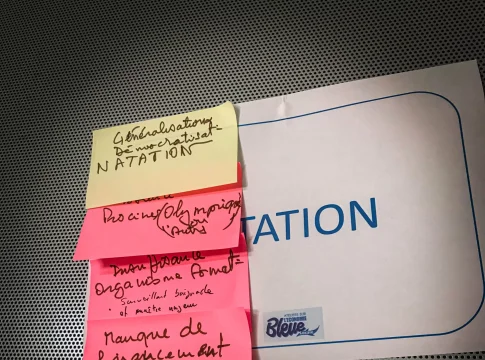 Généralisation
Démocratisat°
NATATION
Piscines (Olympique
ou
Insuffisance
organisme format°
• Surveillant baignade
et maître nageur
Manque de
TATION
L'ÉCONOMIE
Bleue